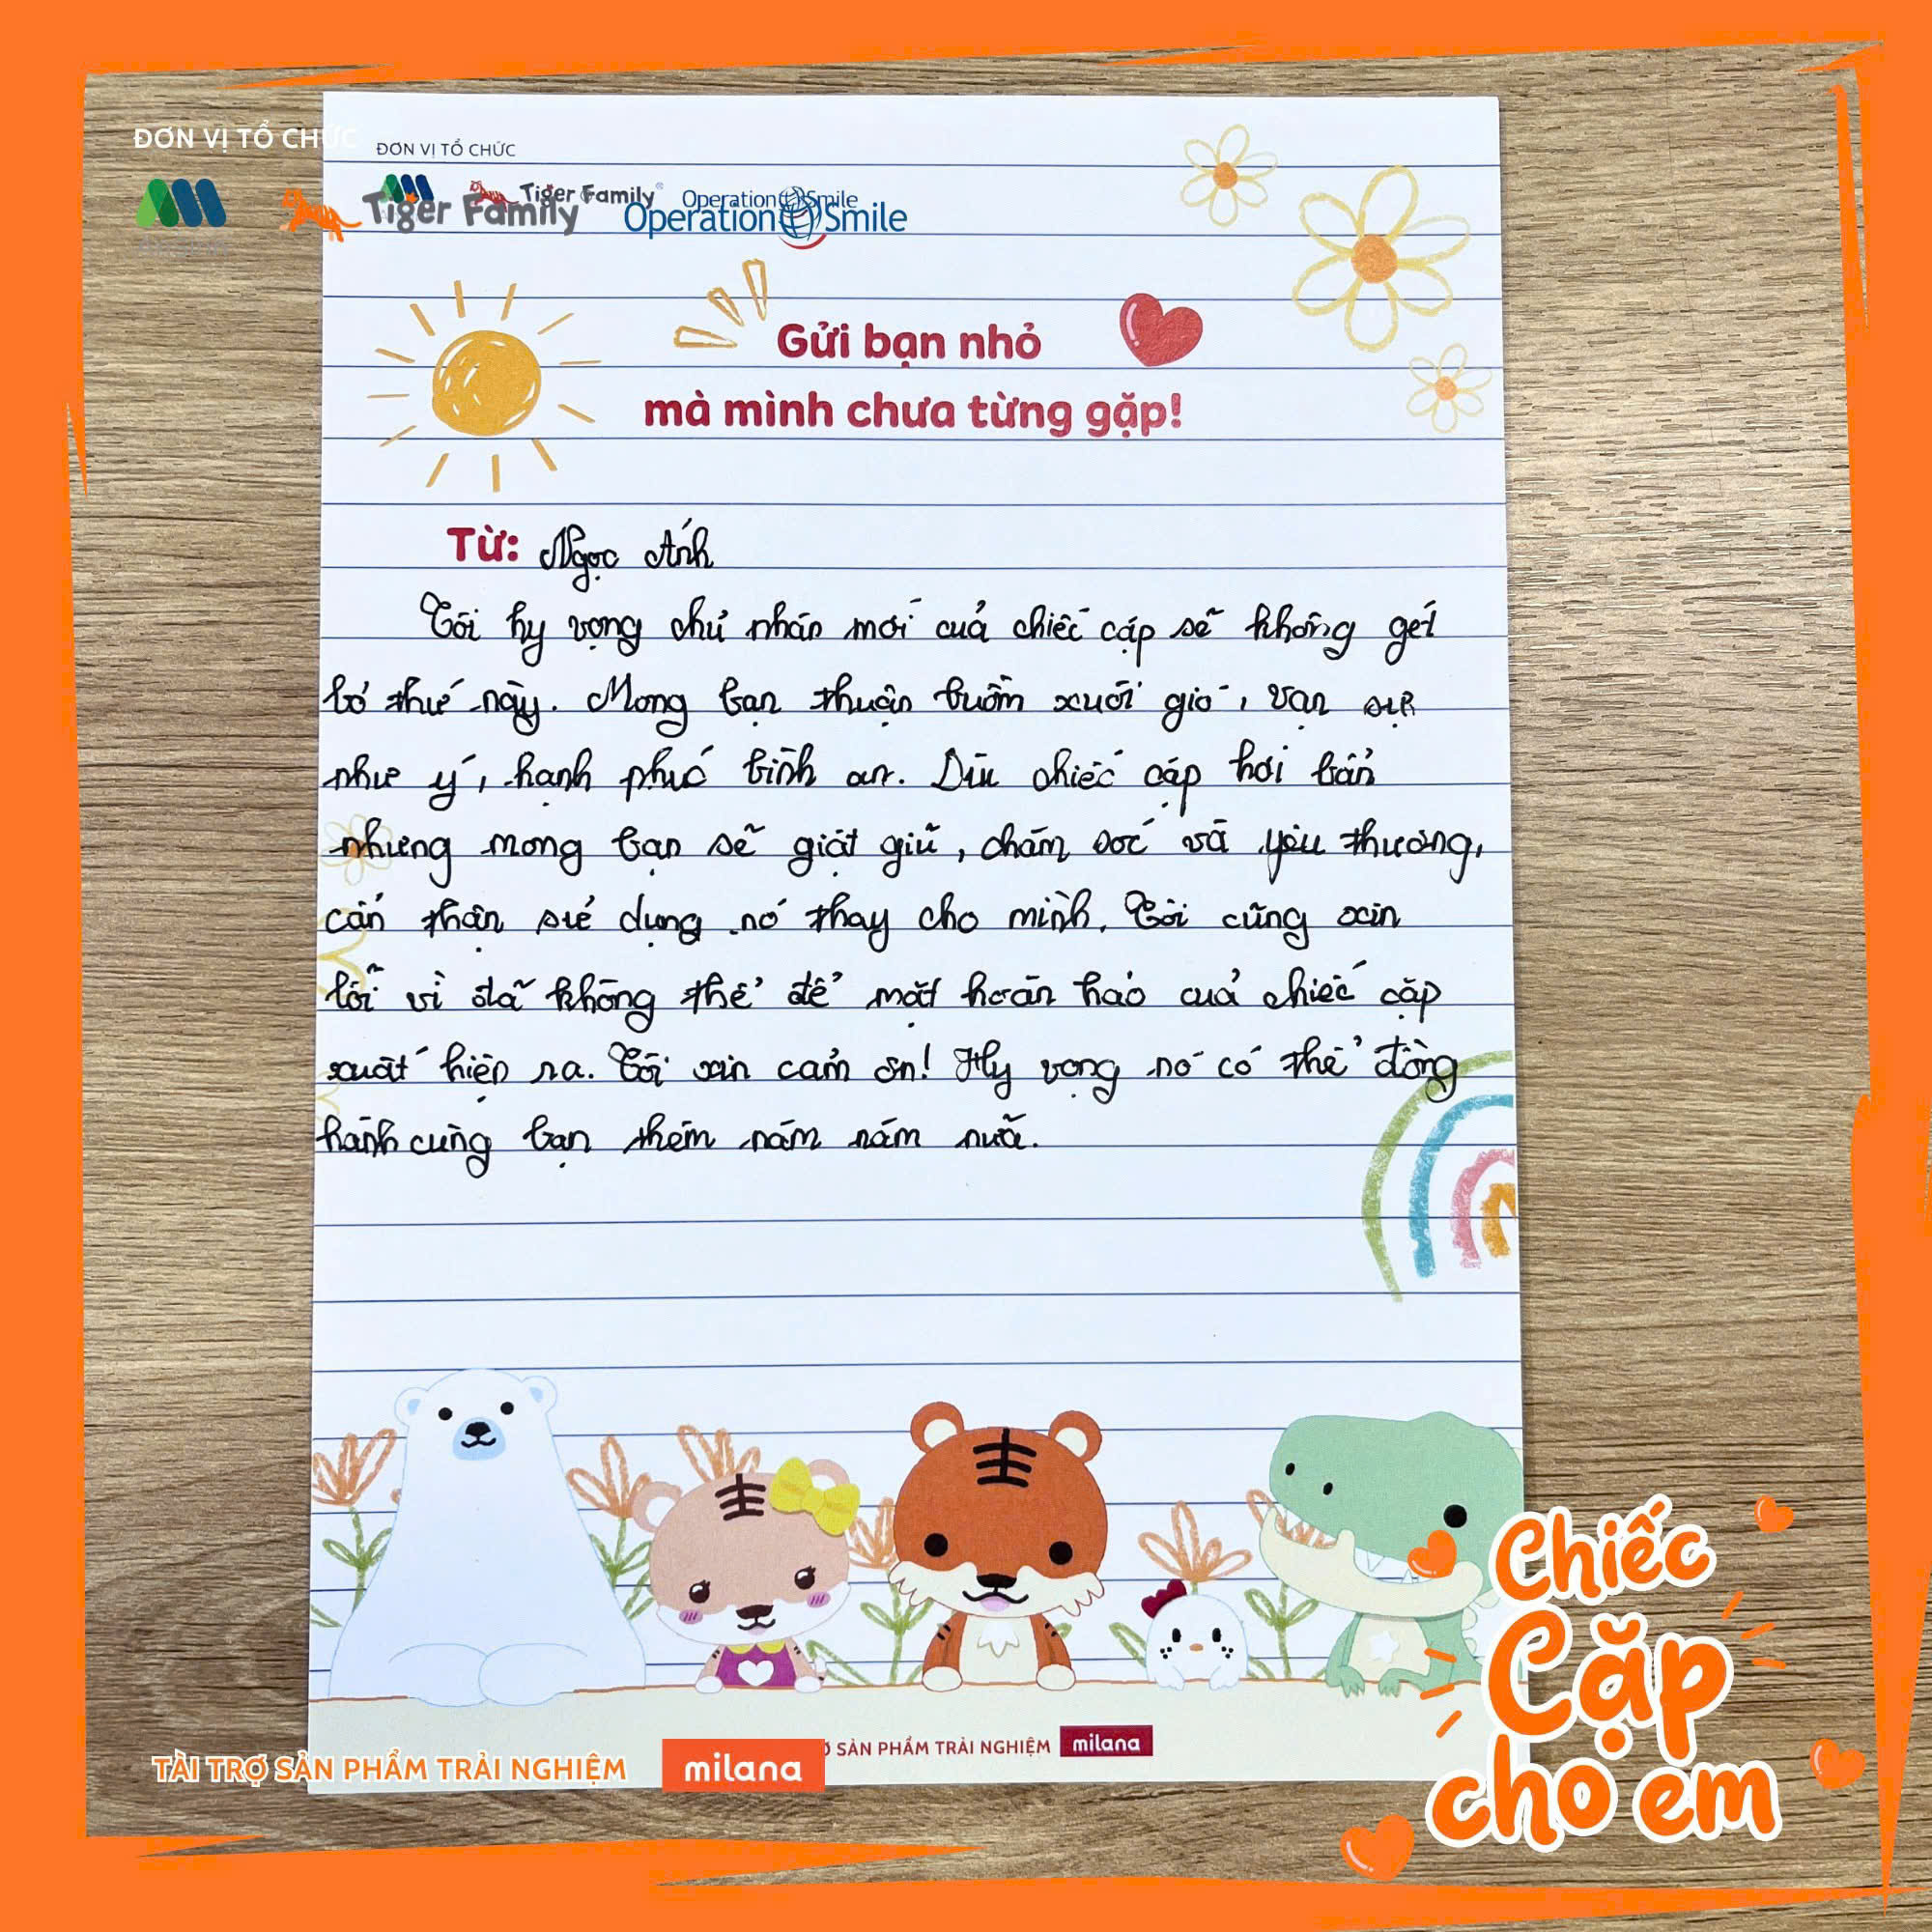 ĐƠN VỊ TỔ CHỨC
ĐƠN VỊ TỔ CHỨC
Tiger Family
Operation Smile
Tiger Family
Operation Smile
Gửi bạn nhỏ
mà mình chưa từng gặp!
Từ: Ngọc Ánh
Tôi hy vọng chủ nhân mới của chiếc cặp sẽ không gét
bỏ thứ này. Mong bạn thuận buồm xuôi gió, vạn sự
như ý, hạnh phúc bình an. Dù chiếc cặp hơi bẩn
nhưng mong bạn sẽ giặt giũ, chăm sóc và yêu thương,
cẩn thận sử dụng nó thay cho mình. Tôi cũng xin
lỗi vì đã không thể để mặt hoàn hảo của chiếc cặp
xuất hiện ra. Tôi xin cảm ơn! Hy vọng nó có thể đồng
hành cùng bạn thêm năm năm nữa.
SẢN PHẨM TRẢI NGHIỆM milana
TÀI TRỢ SẢN PHẨM TRẢI NGHIỆM milana
Chiếc
Cặp
cho em